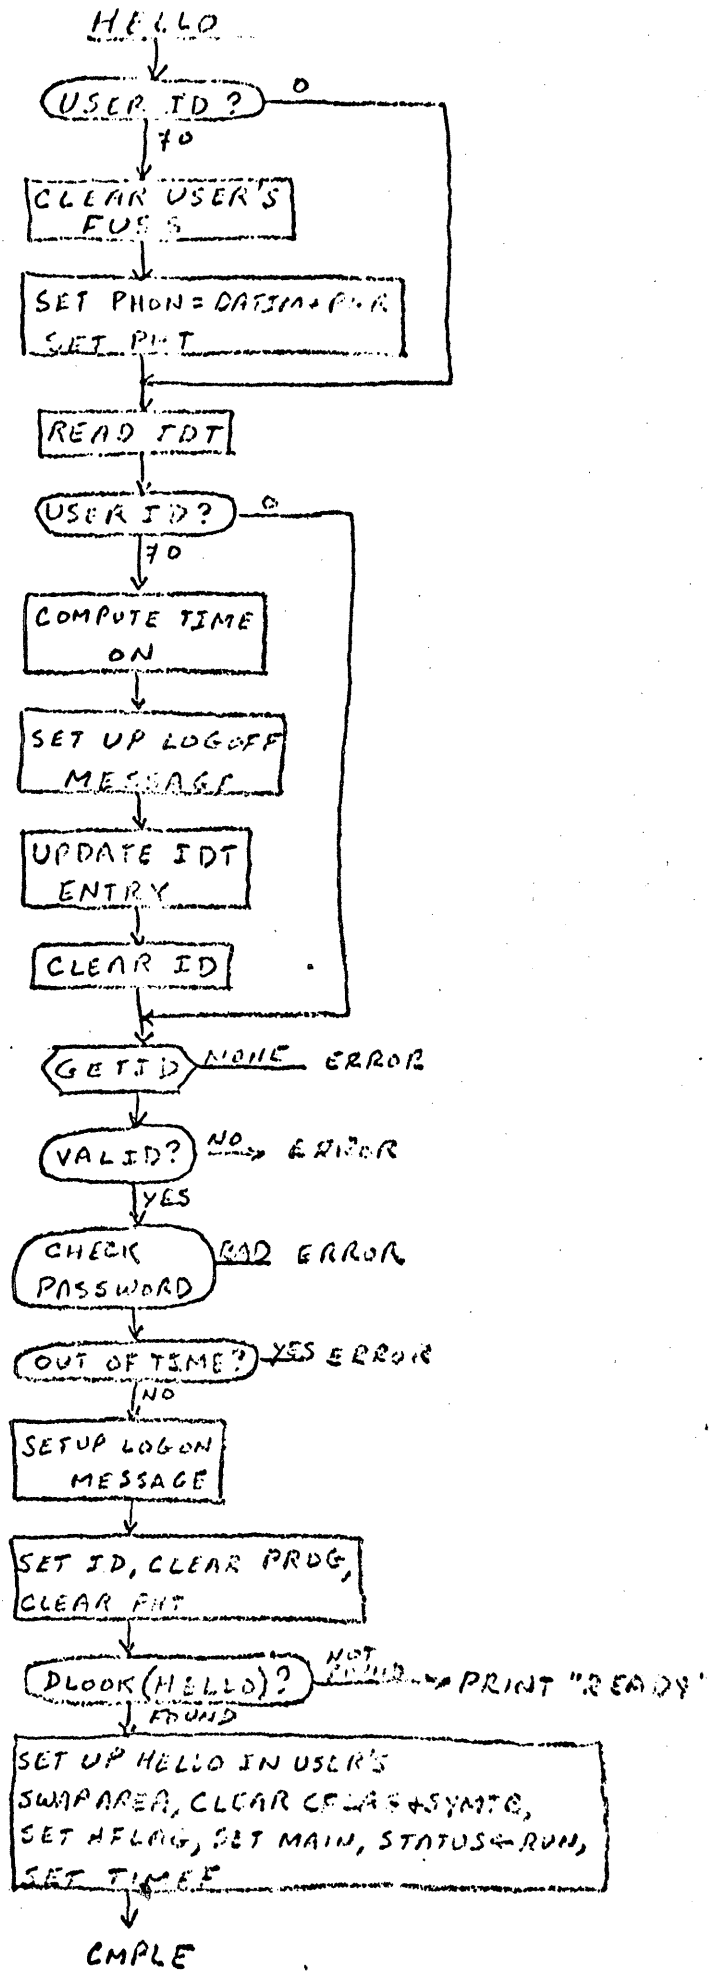 HELLO
USER ID? 0
≠0
CLEAR USER'S
FUSS
SET PHON=DATIM+PHR
SET PHT
READ IDT
USER ID? 0
≠0
COMPUTE TIME
ON
SET UP LOGOFF
MESSAGE
UPDATE IDT
ENTRY
CLEAR ID
GETID NONE ERROR
VALID? NO ERROR
YES
CHECK
PASSWORD
BAD ERROR
OUT OF TIME? YES ERROR
NO
SETUP LOGON
MESSAGE
SET ID, CLEAR PROG,
CLEAR PHT
NOT
FOUND
DLOOK(HELLO)? PRINT "READY"
FOUND
SET UP HELLO IN USER'S
SWAP AREA, CLEAR CFLAG+SYMTB,
SET HFLAG, SET MAIN, STATUS←RUN,
SET TIMEF
CMPLE